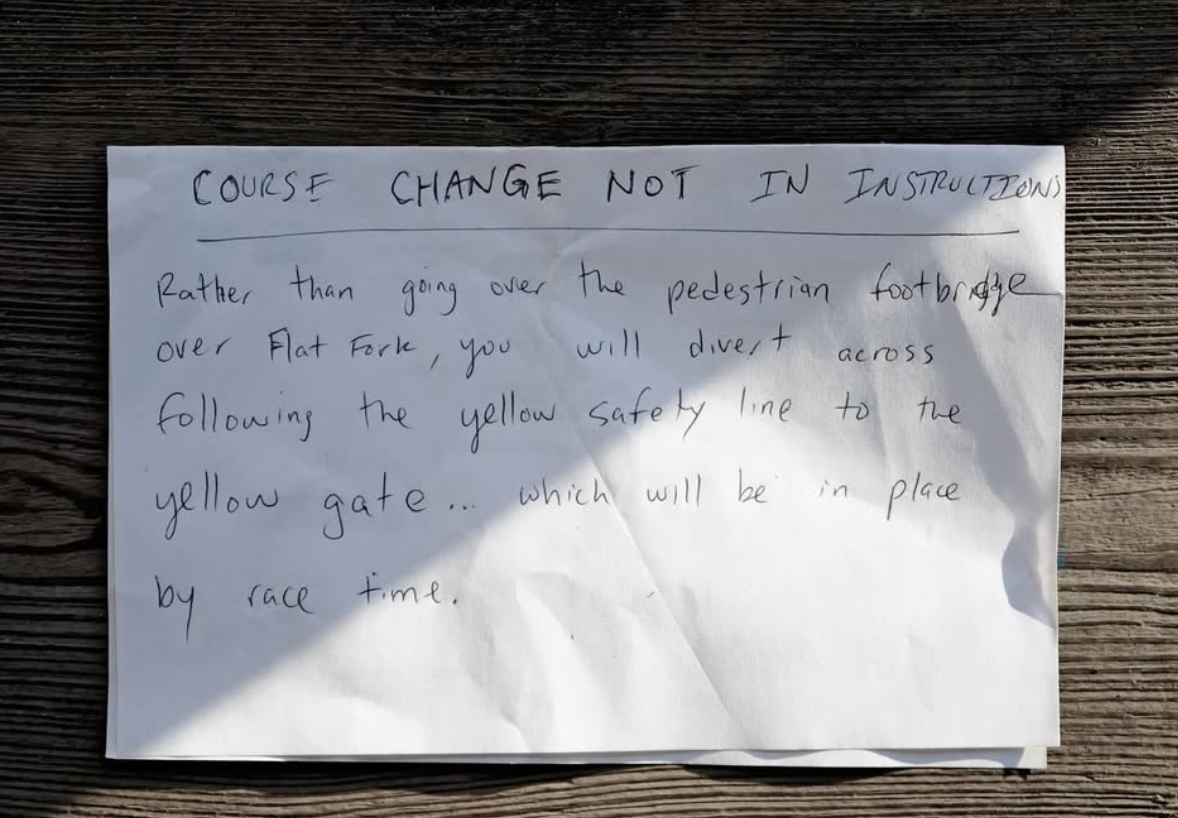 COURSE CHANGE NOT IN INSTRUCTIONS
Rather than going over the pedestrian footbridge
over Flat Fork, you will divert across
following the yellow safety line to the
yellow gate... which will be in place
by race time.